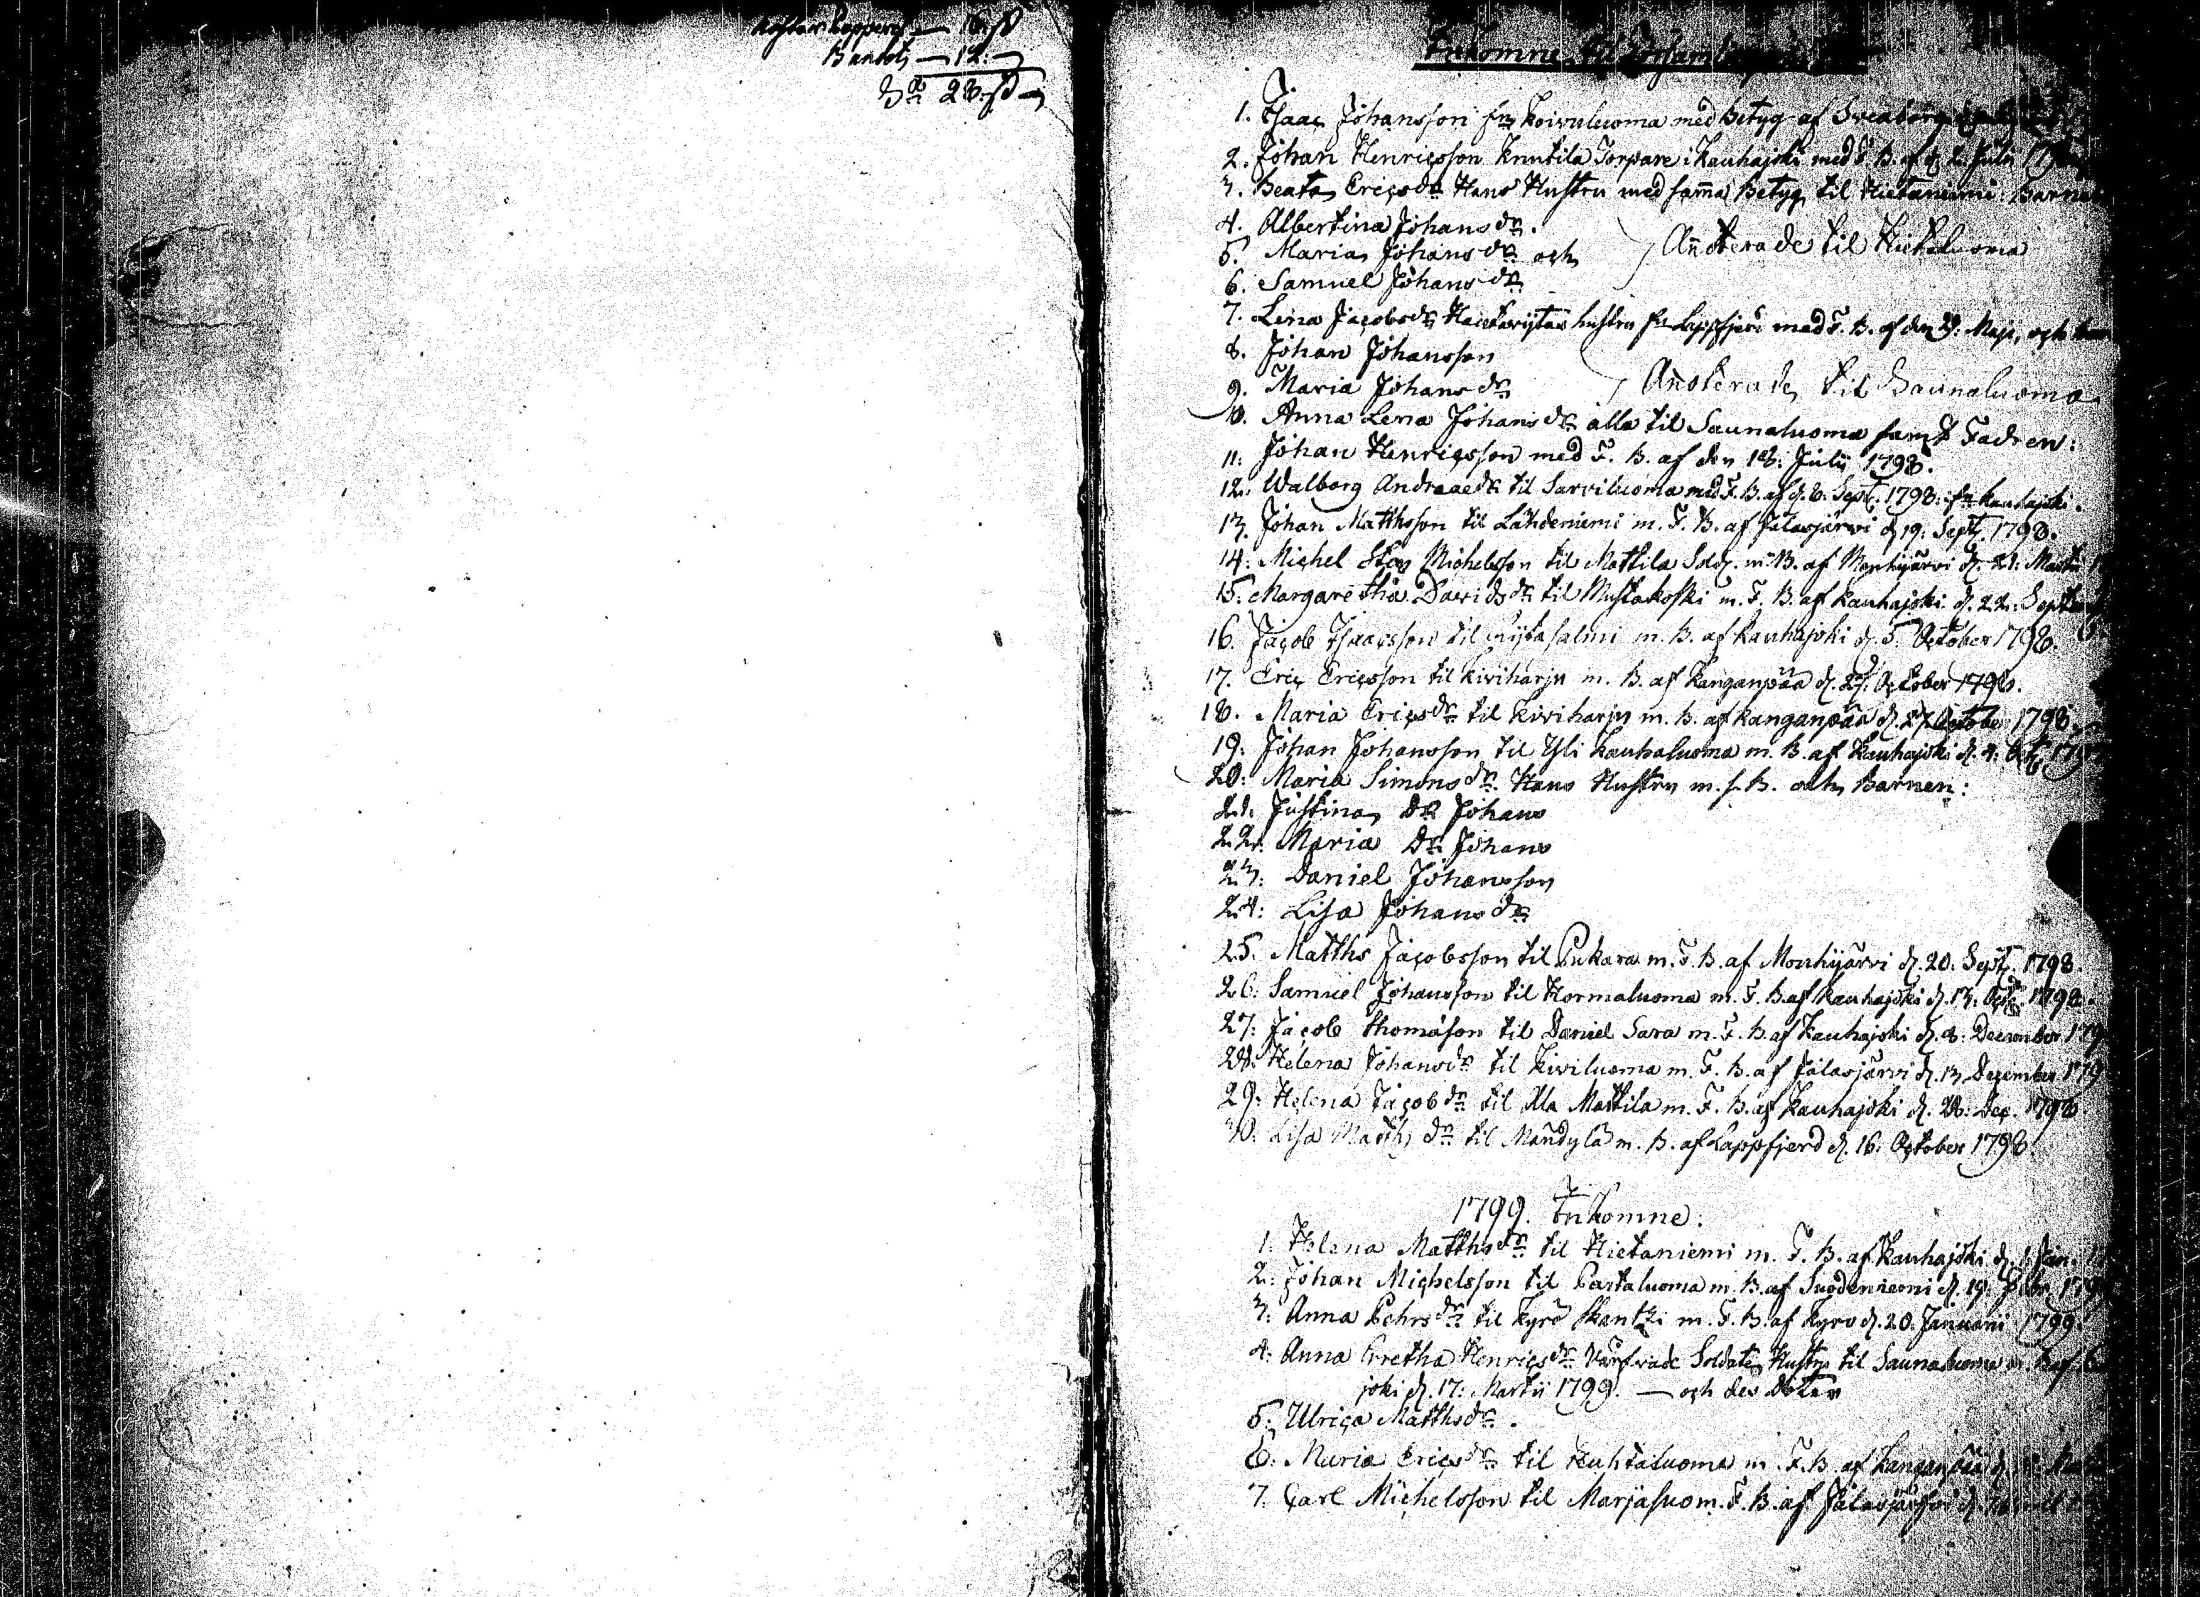 16
B 12:
Sa 28:
Inkomne til Församlingen
1. Isaac Johansson frn Koivuluoma med Betyg af Sveaborg
2. Johan Henricsson Knutila Torpare i Kauhajoki med F. B. af d. 2. Julii 179
3. Beata Ericsdr Hans Hustru med sama Betyg til Hietaniemi: Barne
4. Albertina Johansdr.
5. Maria Johansdr och
Anoterade til
6. Samuel Johansdr
7. Lena Jacobsdr hustru frn Lappfjerd med F. B. af den Maji, och
8. Johan Johansson
9. Maria Johansdr
Anoterade til Saunaluoma
10. Anna Lena Johansdr alla til Saunaluoma samt Fadren:
11: Johan Henricsson med F. B. af den 18: Julii 1798.
12. Walborg Andreaedr til Sarviluoma med F. B. af d. 8. Sept. 1798. frn Kauhajoki.
13. Johan Matthsson til Lähdeniemi m. F. B. af Jalasjärvi d. 19. Sept. 1798.
14: Michel Michelsson til Mattila Sold. m. B. af Mouhijärvi d. 21: Martii
15: Margaretha Davidsdr til Mustakoski m. F. B. af Kauhajoki d. 22: Septemb
16. Jacob Isaacsson til m. B. af Kauhajoki d. 5. October 1798.
17. Eric Ericsson til Kiviharju m. B. af Kanganpää d. 27. October 1798.
18. Maria Ericsdr til Kiviharju m. B. af Kanganpää d. 27. October 1798.
19: Johan Johansson til Yli Kauhaluoma m. B. af Kauhajoki d. 4: Oct. 179
20: Maria Simonsdr. Hans Hustru m. s. B. och Barnen:
21: Justina dr Johans
22: Maria dr Johans
23: Daniel Johansson
24: Lisa Johansdr
25. Matths Jacobsson til Pukara m. F. B. af Mouhijärvi d. 20. Sept. 1798.
26: Samuel Johansson til Hormaluoma m. F. B. af Kauhajoki d. 13: Oct. 1798.
27: Jacob Thomasson til Daniel Sara m. F. B. af Kauhajoki d. 8: December 179
28: Helena Johansdr til Kiviluoma m. F. B. af Jalasjärvi d. 13. December 179
29: Helena Jacobdr til Ala Mattila m. F. B. af Kauhajoki d. 28: Dec. 1798
30: Lisa Matthsdr til Mandyla m. B. af Lappfjerd d. 16: October 1798.
1799. Inkomne:
1: Helena Matthsdr til Hietaniemi m. F. B. af Kauhajoki d. 1. Jan.
2: Johan Michelsson til Partaluoma m. B. af Suodenniemi d. 19. Febr. 179
3: Anna Pehrsdr til Kyrö m. F. B. af Kyro d. 20. Januarii 1799.
4: Anna Gretha Henricsdr Värfvade Soldatens Hustru til Saunaluoma m. B. af
joki d. 17: Martii 1799. — och des Dotter
5: Ulrica Matthsdr.
6: Maria Ericsdr til Huhtaluoma m. F. B. af Kanganpää d.
7. Carl Michelsson til Marjasuo m. F. B. af Jalasjärfvi d.